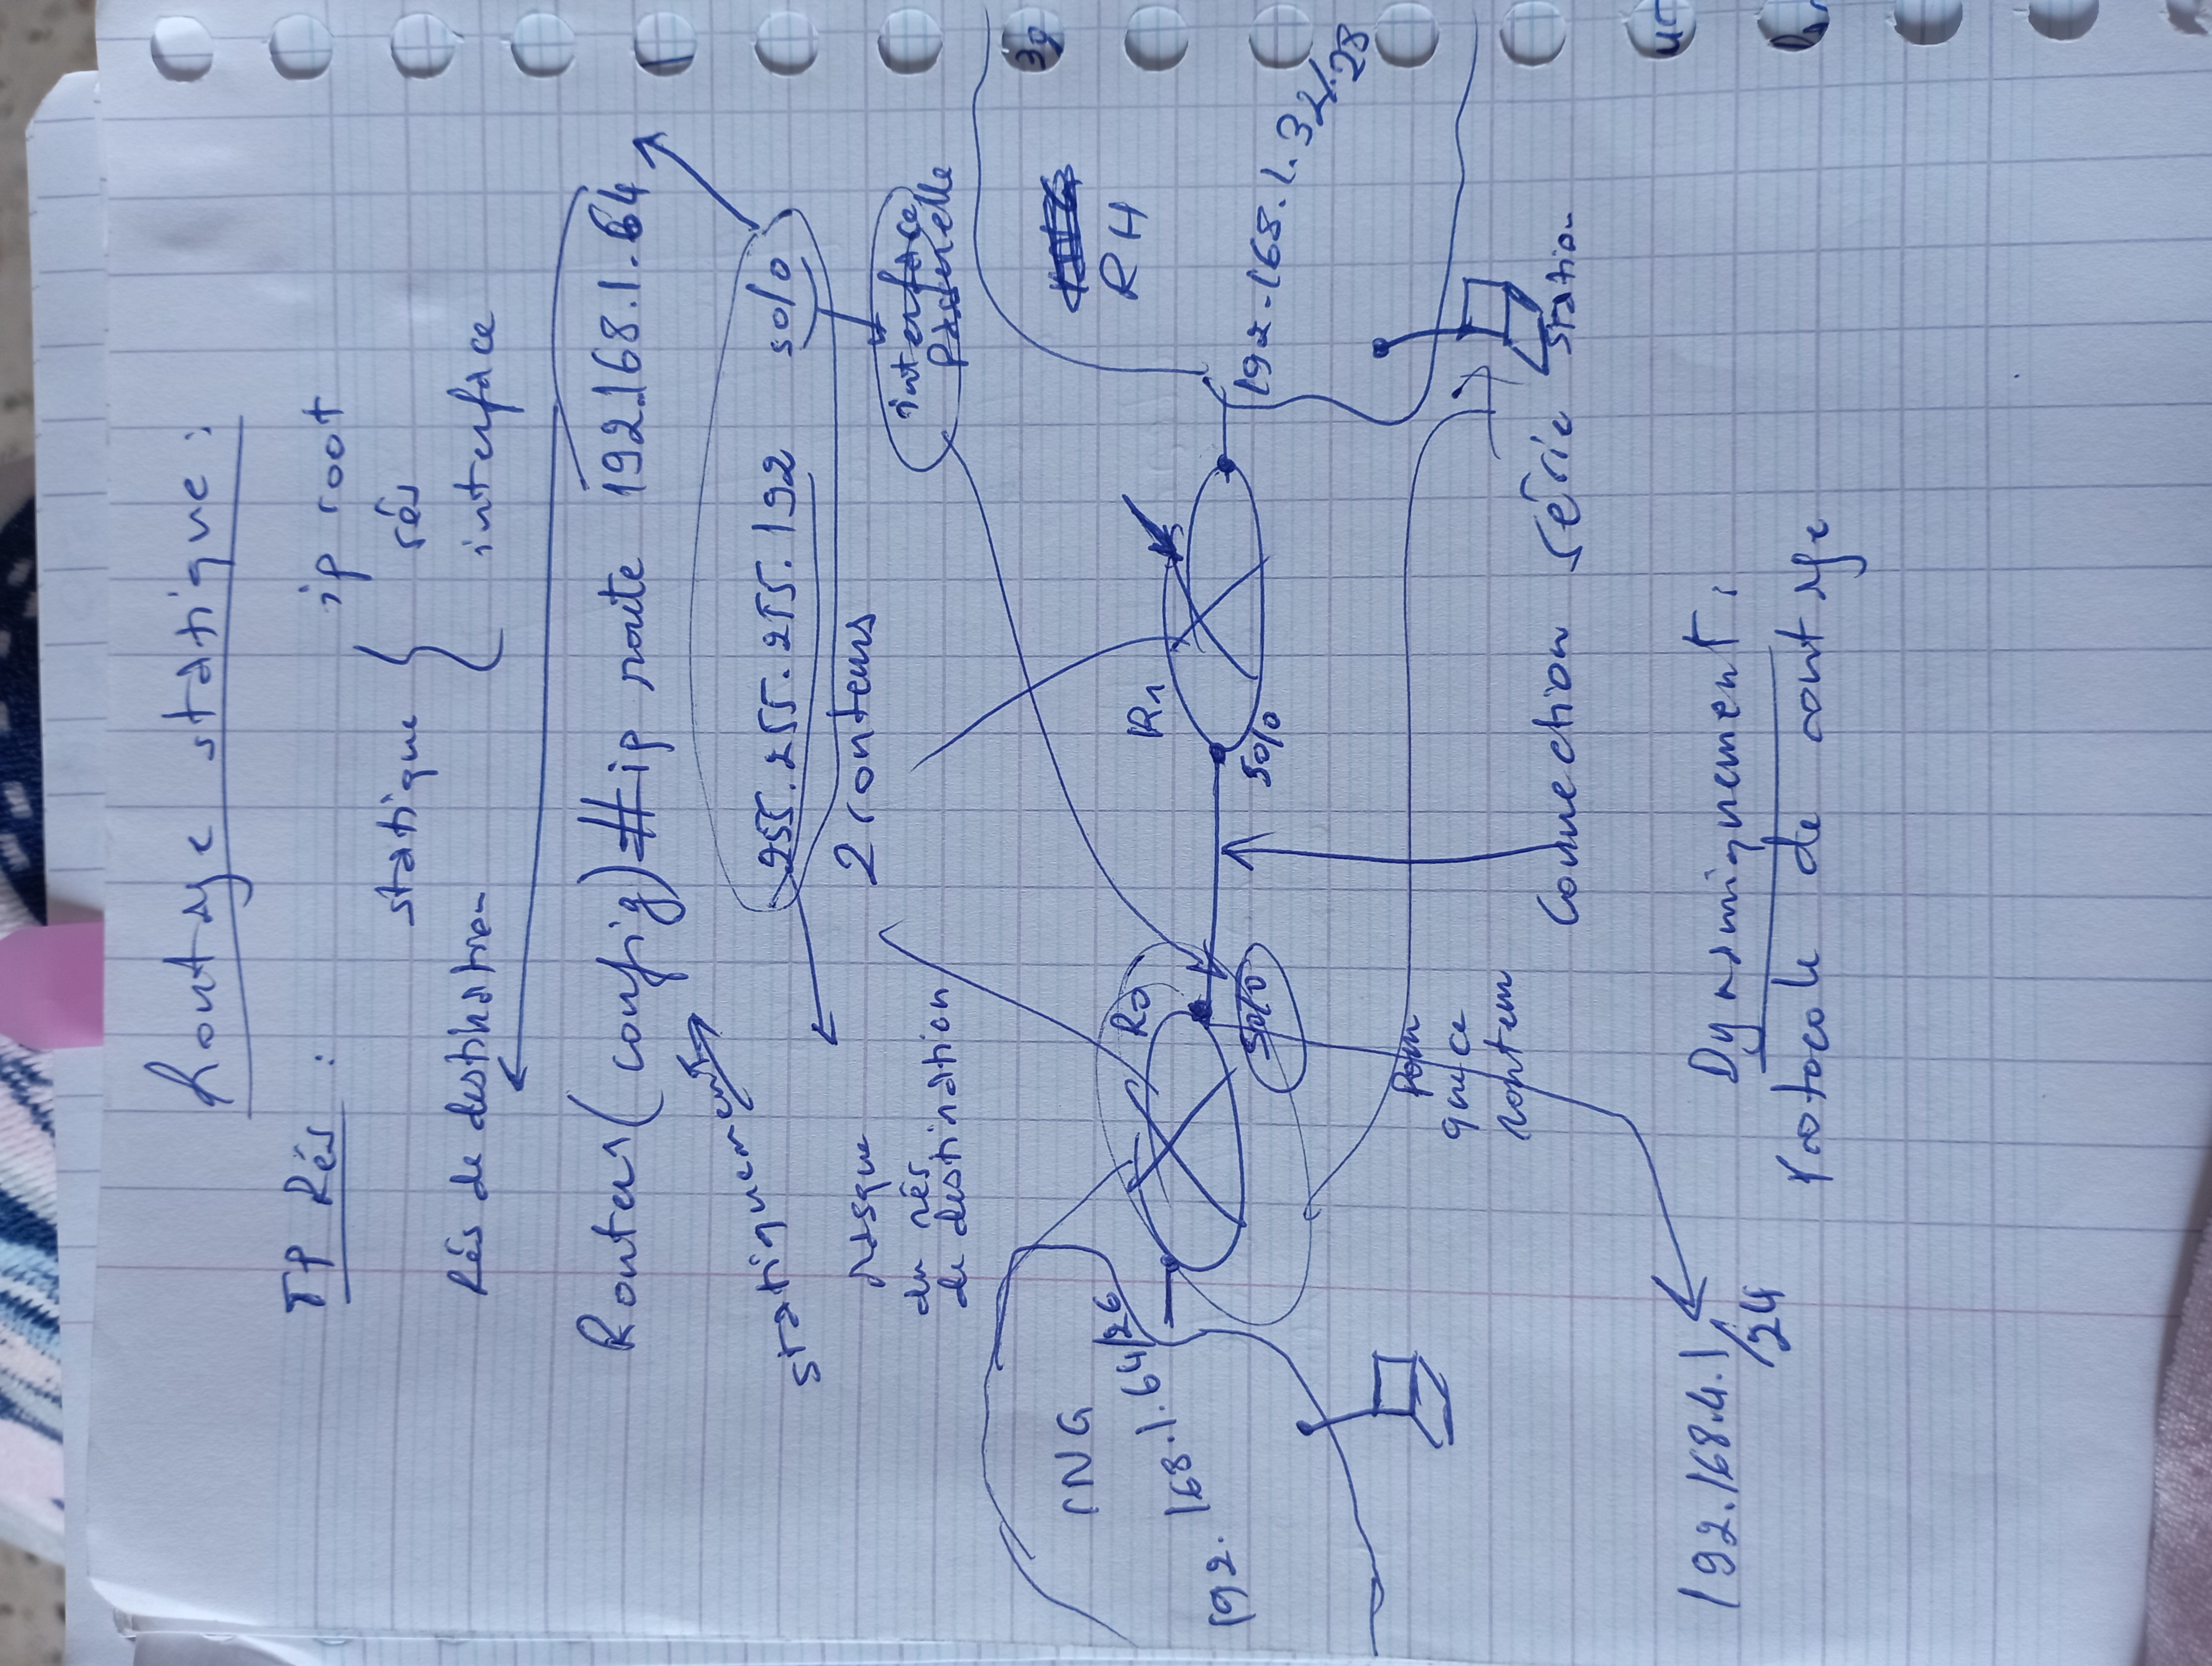 Routage statique :
TP Rés :
ip root
statique { rés
Rés de destination
interface
Routeur(config)#ip route 192.168.1.64
statiquement
255.255.255.192 s0/0
2 routeurs
Masque
du rés
de destination
interface
Passerelle
ING
192.168.1.64/26
RH
R2
R1
s0/0
s0/0
192.168.1.32/28
Pour
que ce
routeur
Connection série
station
192.168.4.1
/24
Dynamiquement :
Protocole de routage